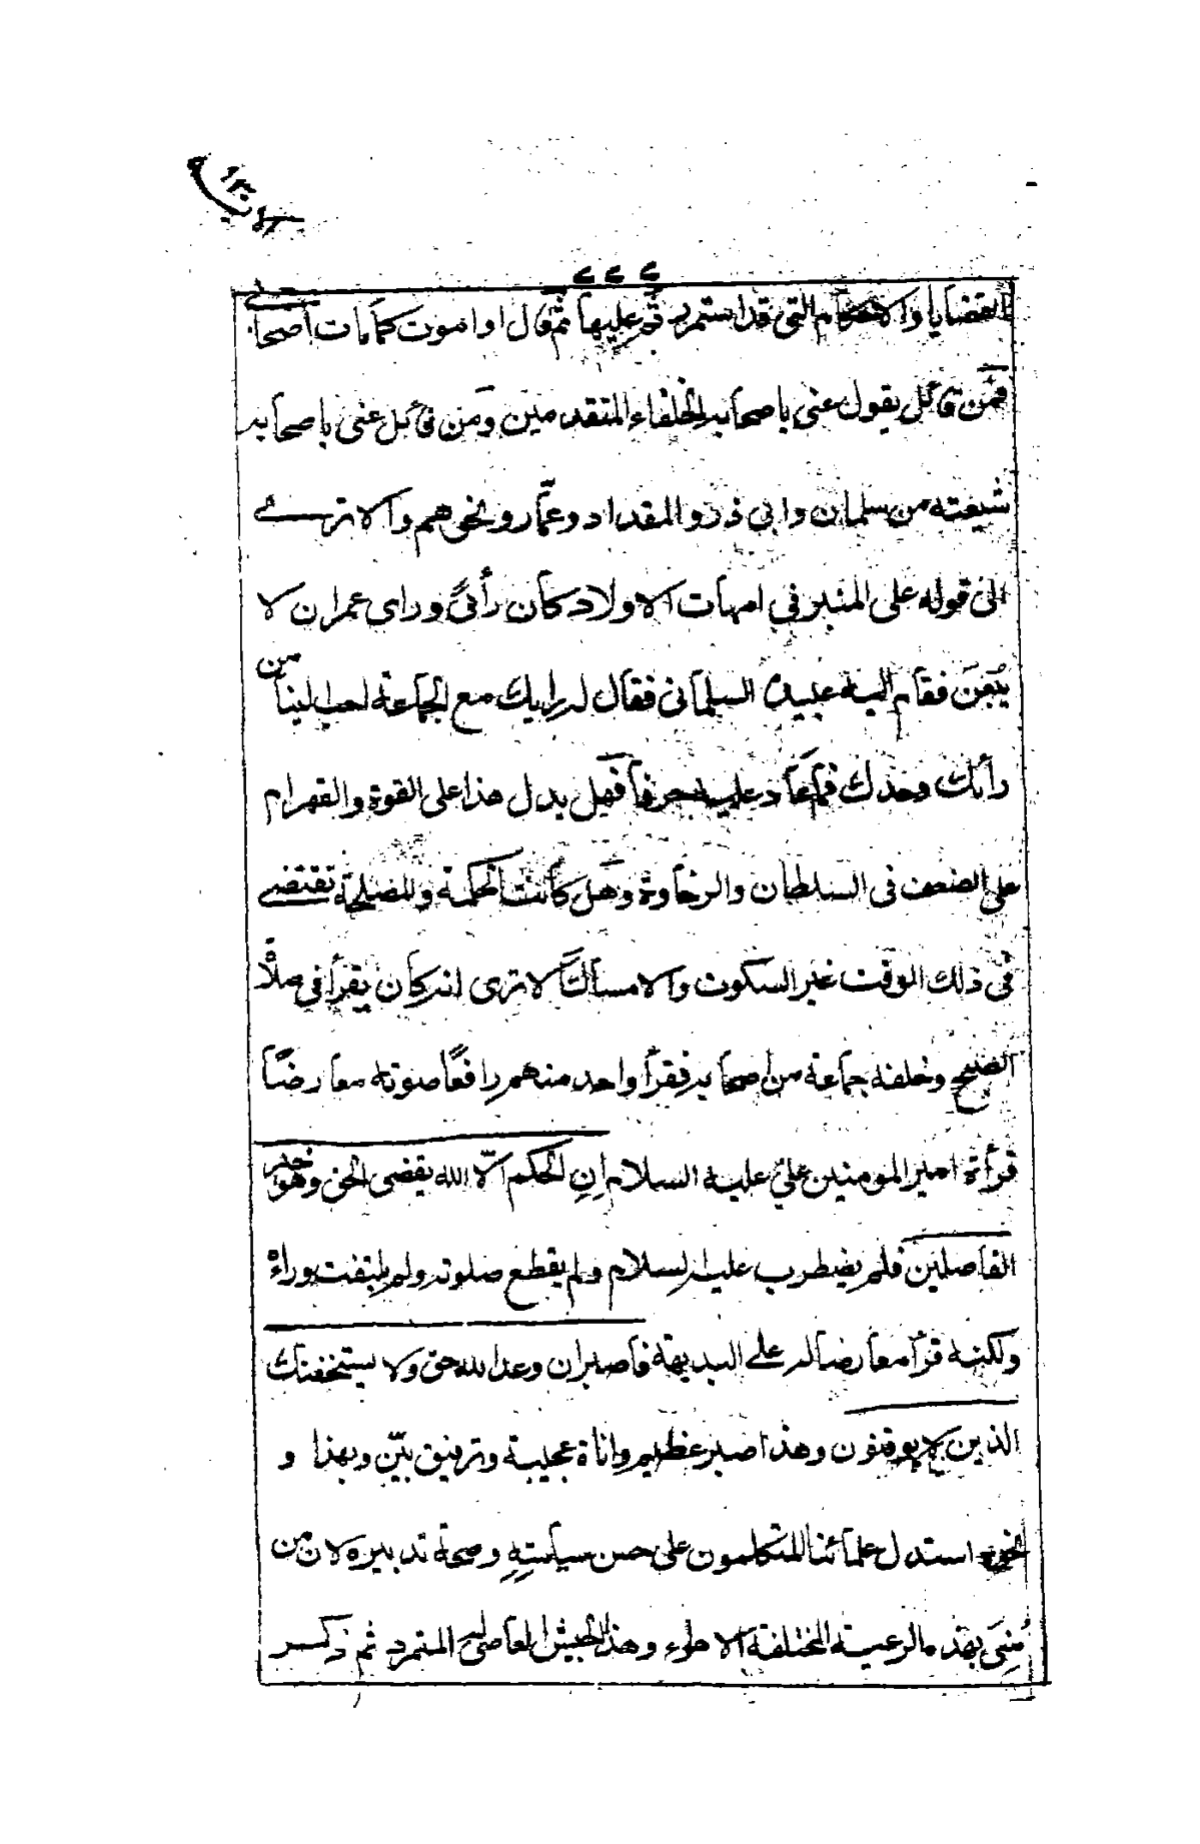 القضايا والاحكام التي قد استمر بهم عليها ثم قال او اموت كما مات اصحابي
فمن قائل يقول عنى باصحابه الخلفاء المتقدمين ومن قائل عنى باصحابه
شيعته من سلمان وابى ذر والمقداد وعمّار ونحوهم والا ترى
الى قوله على المنبر في امهات الاولاد كان رأئي وراى عمران لا
يُبَعْنَ فقام اليه عبيدة السلمانى فقال له رايك مع الجماعة احب الينا من
رأئك وحدك فما عاد عليه حرفاً فهل يدل هذا على القوة والقهر ام
على الضعف فى السلطان والرخاوة وهل كانت الحكمة والمصلحة تقتضى
فى ذلك الوقت غير السكوت والامساك الا ترى انه كان يقرأ فى صلاة
الصبح وخلفه جماعة من اصحابه فقرأ واحد منهم رافعًا صوته معارضًا
قرأة امير المومنين عليّ عليه السلام إنِ الحكم الّا لله يقضى الحق وهو خير
الفاصلين فلم يضطرب عليه السلام ولم يقطع صلوته ولم يلتفت وراءه
ولكنه قرأ معارضا له على البديهة فاصبر ان وعد الله حق ولا يستخفنك
الذين لا يوقنون وهذا صبر عظيم واناة عجيبة وترفيق بيّن وبهذا و
نحوه استدل علمائنا المتكلمون على حسن سياسته وصحة تدبيره لان من
مُنِىَ بهذه الرعية المختلفة الاهواء وهذا الجيش العاصى له المتمرد ثم ذكر